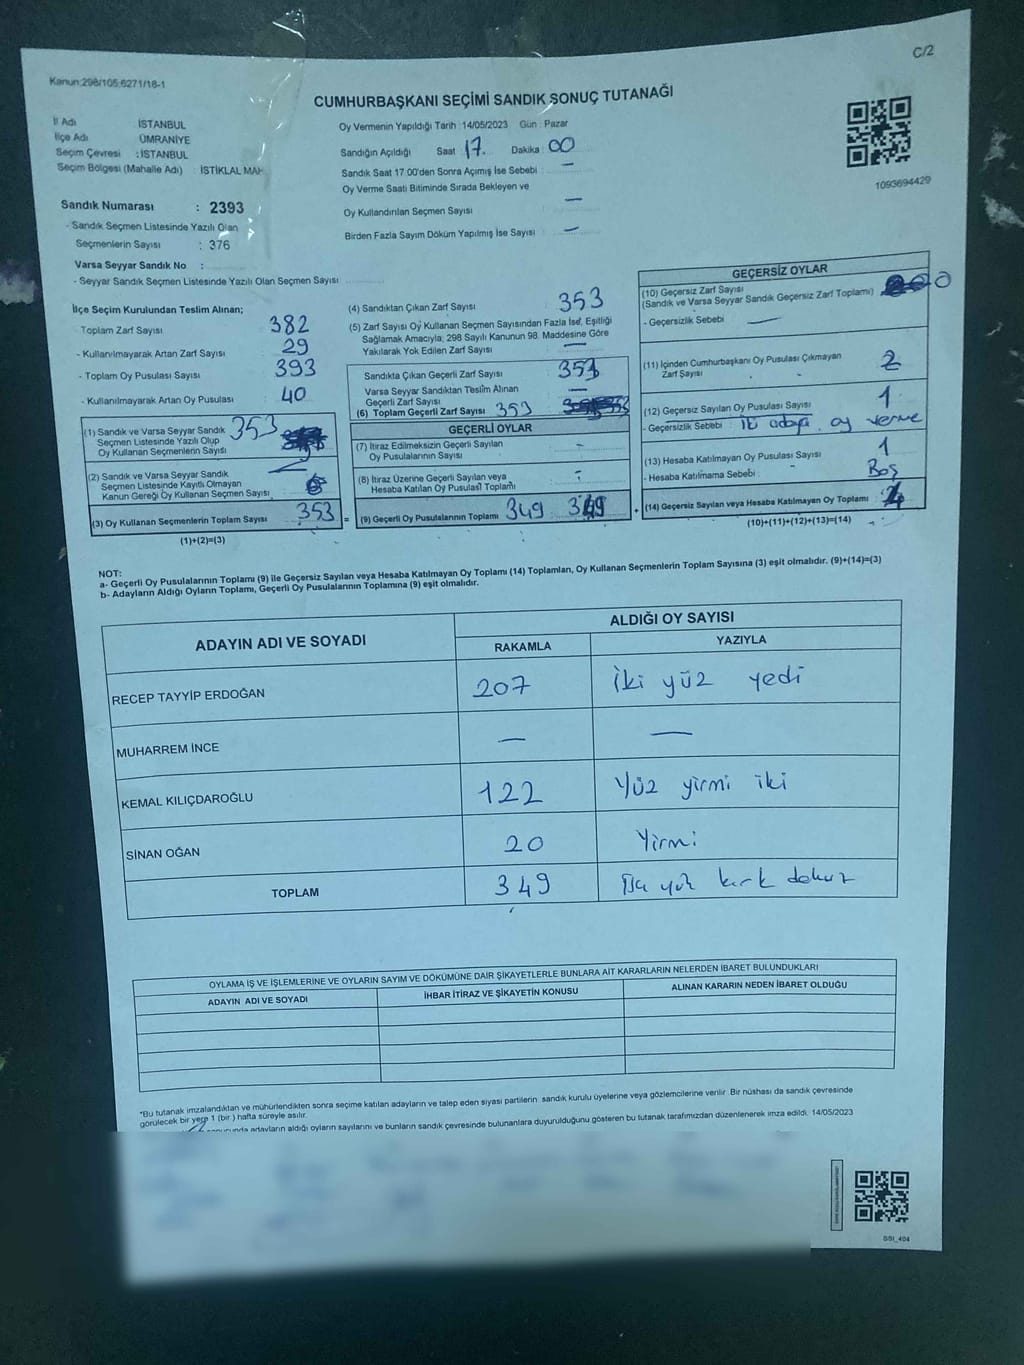 C/2
Kanun:298/105,6271/18-1
CUMHURBAŞKANI SEÇİMİ SANDIK SONUÇ TUTANAĞI
İl Adı İSTANBUL
İlçe Adı ÜMRANİYE
Seçim Çevresi : İSTANBUL
Seçim Bölgesi (Mahalle Adı) İSTİKLAL MAH
Oy Vermenin Yapıldığı Tarih :14/05/2023 Gün : Pazar
Sandığın Açıldığı Saat 17. Dakika : 00
Sandık Saat 17:00'den Sonra Açımış İse Sebebi : —
Oy Verme Saati Bitiminde Sırada Bekleyen ve
Oy Kullandırılan Seçmen Sayısı —
Birden Fazla Sayım Döküm Yapılmış İse Sayısı : —
1093694429
Sandık Numarası : 2393
- Sandık Seçmen Listesinde Yazılı Olan
Seçmenlerin Sayısı : 376
Varsa Seyyar Sandık No :
- Seyyar Sandık Seçmen Listesinde Yazılı Olan Seçmen Sayısı
İlçe Seçim Kurulundan Teslim Alınan;
- Toplam Zarf Sayısı 382
- Kullanılmayarak Artan Zarf Sayısı 29
- Toplam Oy Pusulası Sayısı 393
- Kullanılmayarak Artan Oy Pusulası 40
(1) Sandık ve Varsa Seyyar Sandık 353
Seçmen Listesinde Yazılı Olup
Oy Kullanan Seçmenlerin Sayısı
(2) Sandık ve Varsa Seyyar Sandık
Seçmen Listesinde Kayıtlı Olmayan
Kanun Gereği Oy Kullanan Seçmen Sayısı
(3) Oy Kullanan Seçmenlerin Toplam Sayısı 353 =
(1)+(2)=(3)
(4) Sandıktan Çıkan Zarf Sayısı 353
(5) Zarf Sayısı Oy Kullanan Seçmen Sayısından Fazla İse, Eşitliği
Sağlamak Amacıyla, 298 Sayılı Kanunun 98. Maddesine Göre
Yakılarak Yok Edilen Zarf Sayısı —
Sandıkta Çıkan Geçerli Zarf Sayısı 353
Varsa Seyyar Sandıktan Teslim Alınan
Geçerli Zarf Sayısı —
(6) Toplam Geçerli Zarf Sayısı 353
GEÇERLİ OYLAR
(7) İtiraz Edilmeksizin Geçerli Sayılan
Oy Pusulalarının Sayısı -
(8) İtiraz Üzerine Geçerli Sayılan veya
Hesaba Katılan Oy Pusulası Toplamı -
(9) Geçerli Oy Pusulalarının Toplamı 349 349 +
GEÇERSİZ OYLAR
(10) Geçersiz Zarf Sayısı
(Sandık ve Varsa Seyyar Sandık Geçersiz Zarf Toplamı) 0
- Geçersizlik Sebebi : —
(11) İçinden Cumhurbaşkanı Oy Pusulası Çıkmayan
Zarf Sayısı 2
(12) Geçersiz Sayılan Oy Pusulası Sayısı 1
- Geçersizlik Sebebi : iki adaya oy verme
(13) Hesaba Katılmayan Oy Pusulası Sayısı 1
- Hesaba Katılmama Sebebi : Boş
(14) Geçersiz Sayılan veya Hesaba Katılmayan Oy Toplamı : 4
(10)+(11)+(12)+(13)=(14)
NOT:
a- Geçerli Oy Pusulalarının Toplamı (9) ile Geçersiz Sayılan veya Hesaba Katılmayan Oy Toplamı (14) Toplamları, Oy Kullanan Seçmenlerin Toplam Sayısına (3) eşit olmalıdır. (9)+(14)=(3)
b- Adayların Aldığı Oyların Toplamı, Geçerli Oy Pusulalarının Toplamına (9) eşit olmalıdır.
ADAYIN ADI VE SOYADI ALDIĞI OY SAYISI
RAKAMLA YAZIYLA
RECEP TAYYİP ERDOĞAN 207 iki yüz yedi
MUHARREM İNCE — —
KEMAL KILIÇDAROĞLU 122 Yüz yirmi iki
SİNAN OĞAN 20 Yirmi
TOPLAM 349 yüz kırk dokuz
OYLAMA İŞ VE İŞLEMLERİNE VE OYLARIN SAYIM VE DÖKÜMÜNE DAİR ŞİKAYETLERLE BUNLARA AİT KARARLARIN NELERDEN İBARET BULUNDUKLARI
ADAYIN ADI VE SOYADI İHBAR İTİRAZ VE ŞİKAYETİN KONUSU ALINAN KARARIN NEDEN İBARET OLDUĞU
*Bu tutanak imzalandıktan ve mühürlendikten sonra seçime katılan adayların ve talep eden siyasi partilerin sandık kurulu üyelerine veya gözlemcilerine verilir. Bir nüshası da sandık çevresinde
görülecek bir yere 1 (bir ) hafta süreyle asılır.
adayların aldığı oyların sayılarını ve bunların sandık çevresinde bulunanlara duyurulduğunu gösteren bu tutanak tarafımızdan düzenlenerek imza edildi. 14/05/2023
SSI_404